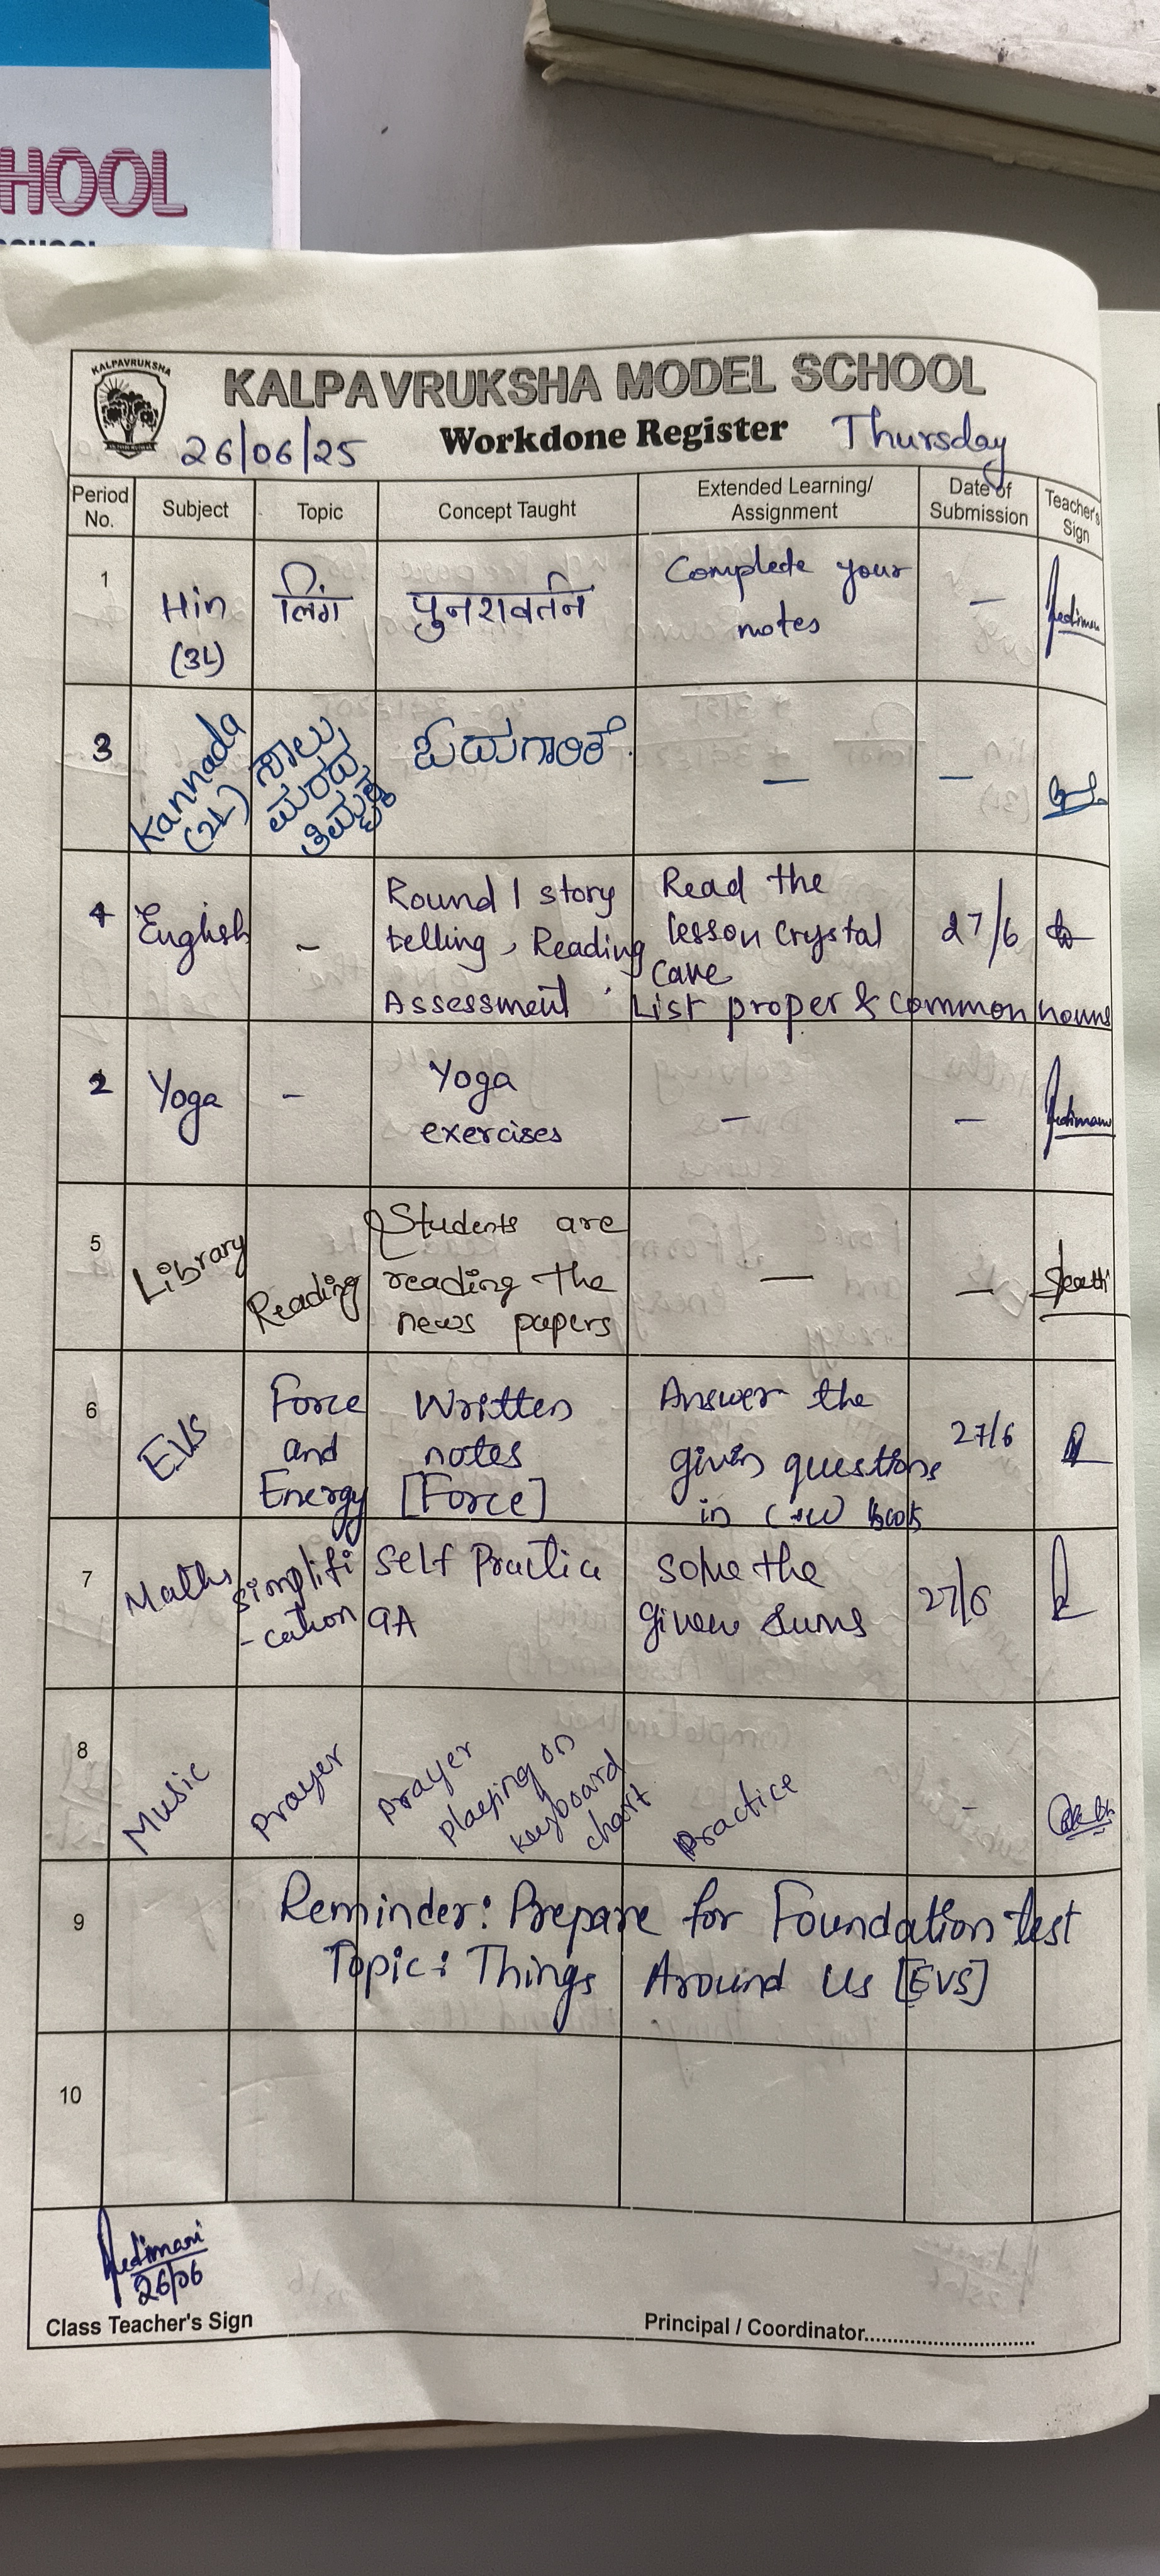 HOOL
KALPAVRUKSHA
KALPAVRUKSHA MODEL SCHOOL
26/06/25 Workdone Register Thursday
Period No. Subject Topic Concept Taught Extended Learning/ Assignment Date of Submission Teacher's Sign
1 Hin (3L) लिंग पुनरावर्तन Complete your notes —
3 Kannada (2L) ಸಾಲು ಮರದ ತಿಮ್ಮಕ್ಕ ಓದುಗಾರಿಕೆ. — —
4 English - Round 1 story telling, Reading Assessment. Read the lesson Crystal Cave List proper & common nouns 27/6
2 Yoga - Yoga exercises — —
5 Library Reading Students are reading the news papers — —
6 EVS Force and Energy Written notes [Force] Answer the given questions in C.W book 27/6
7 Maths Simplifi -cation Self Practice 9A Solve the given sums 27/6
8 Music Prayer Prayer playing on keyboard chart Practice -
9 Reminder: Prepare for Foundation test
Topic: Things Around Us [EVS]
10
26/06
Class Teacher's Sign Principal / Coordinator..............................